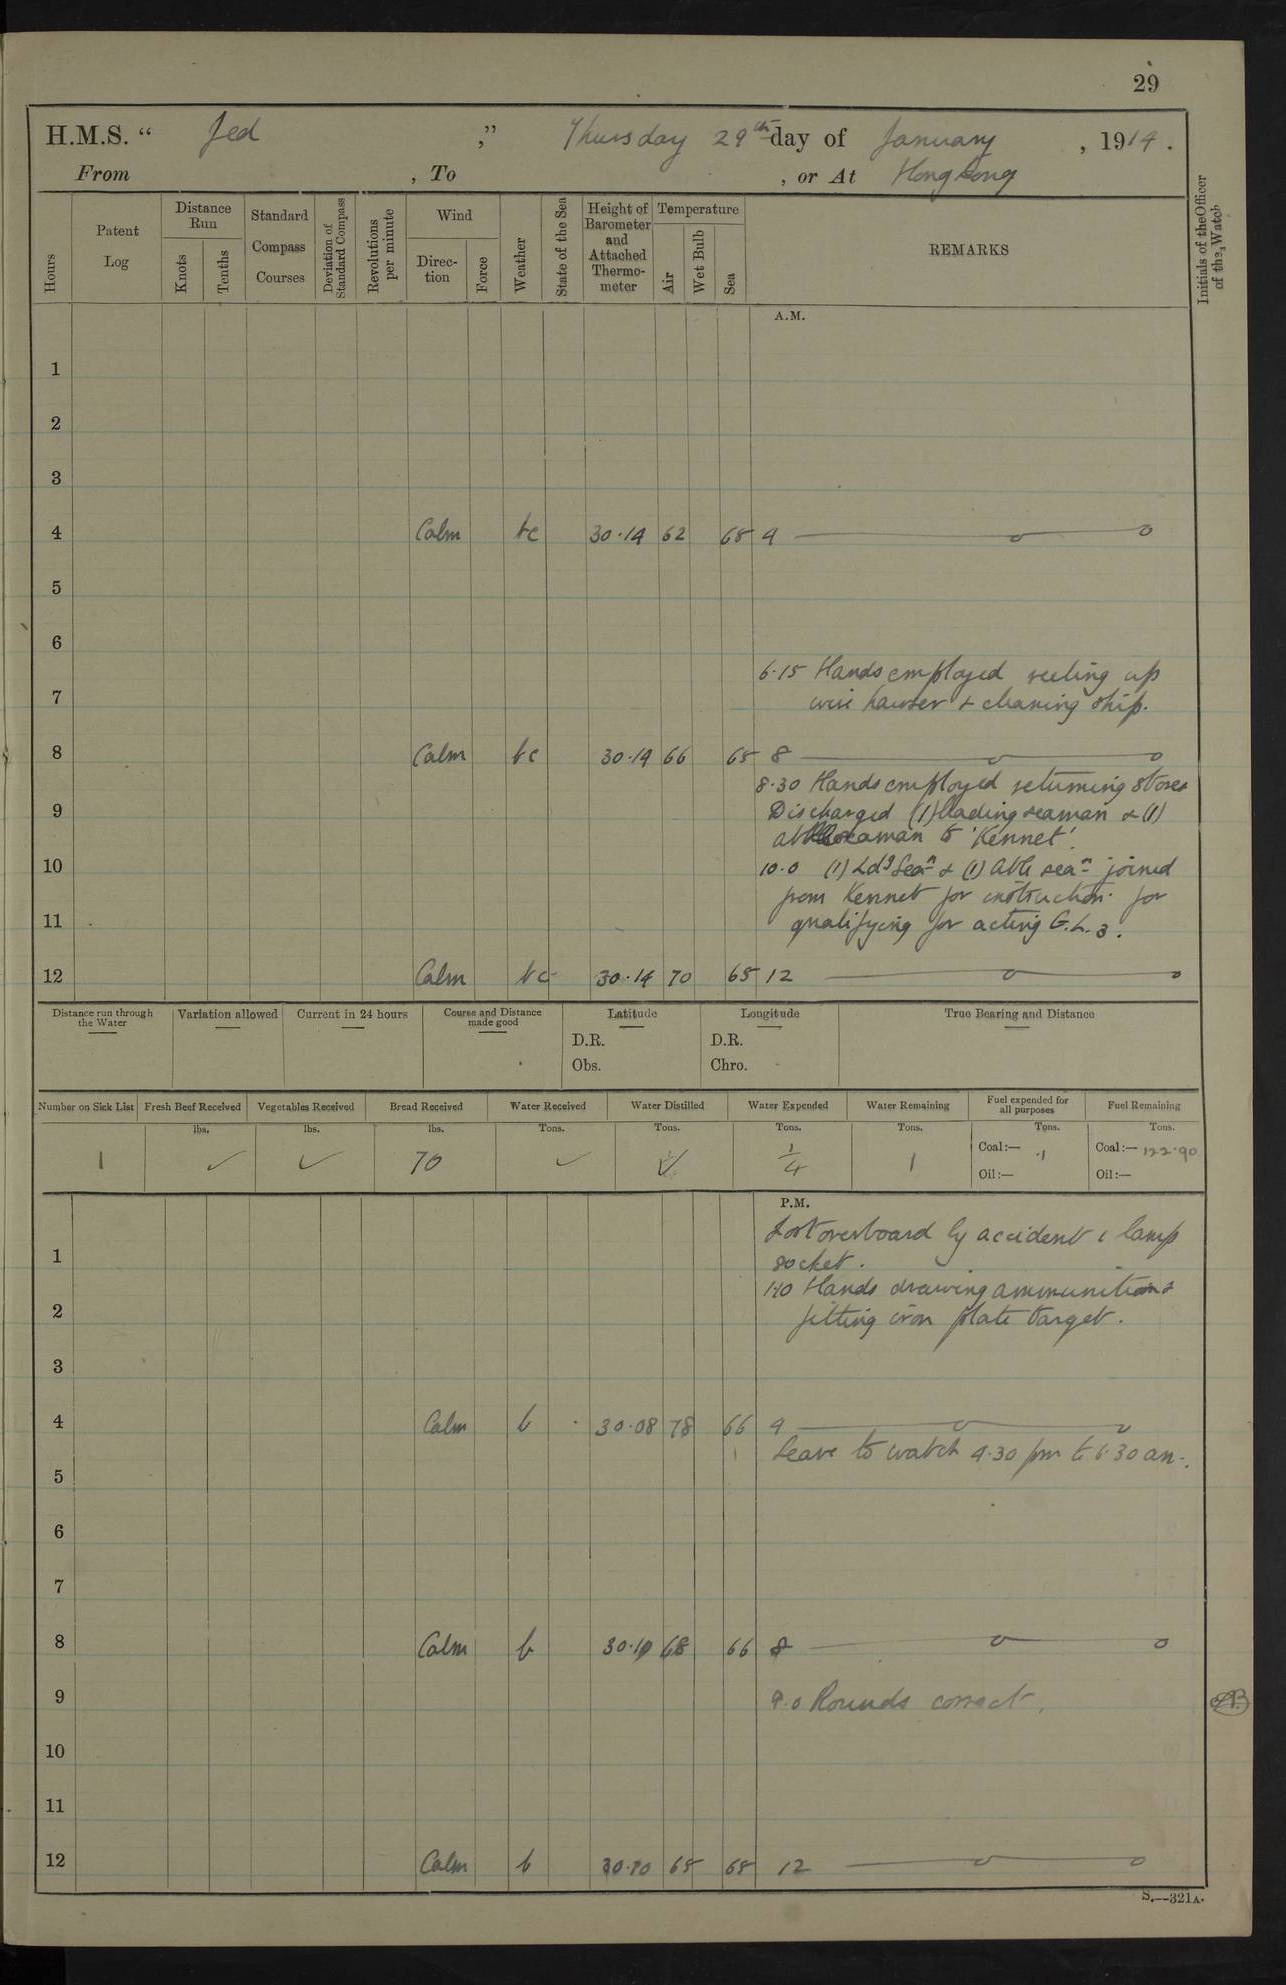 29
H.M.S. “ Jed ,” Thursday 29th day of January , 1914 .
From , To , or At Hong Kong
Hours
Patent Log
Distance Run
Knots
Tenths
Standard Compass Courses
Deviation of Standard Compass
Revolutions per minute
Wind
Direction
Force
Weather
State of the Sea
Height of Barometer and Attached Thermo-meter
Temperature
Air
Wet Bulb
Sea
REMARKS
Initials of the Officer of the Watch
A.M.
1
2
3
4 Calm bc 30.14 62 65 4
5
6
6.15 Hands employed reeling up
7 wire hawser & cleaning ship.
8 Calm bc 30.14 66 65 8
8.30 Hands employed returning stores
9 Discharged (1) leading seaman & (1)
able seaman to 'Kennet'.
10 10.0 (1) Ldg Sean & (1) Able sean joined
from Kennet for instruction for
11 qualifying for acting G.L.3.
12 Calm bc 30.14 70 65 12
Distance run through the Water
Variation allowed
Current in 24 hours
Course and Distance made good
Latitude
D.R.
Obs.
Longitude
D.R.
Chro.
True Bearing and Distance
Number on Sick List Fresh Beef Received Vegetables Received Bread Received Water Received Water Distilled Water Expended Water Remaining Fuel expended for all purposes Fuel Remaining
lbs. lbs. lbs. Tons. Tons. Tons. Tons. Tons. Tons.
1 ✓ ✓ 70 ✓ ✓ 1/4 1 Coal:— .1 Coal:— 122.90
Oil:— Oil:—
P.M.
Lost overboard by accident 1 lamp
1 socket.
1.10 Hands drawing ammunition &
2 fitting iron plate target.
3
4 Calm b 30.08 78 66 4
Leave to watch 4.30 pm to 6.30 am.
5
6
7
8 Calm b 30.10 68 66 8
9 9.0 Rounds correct.
10
11
12 Calm b 30.10 65 65 12
S.—321A.